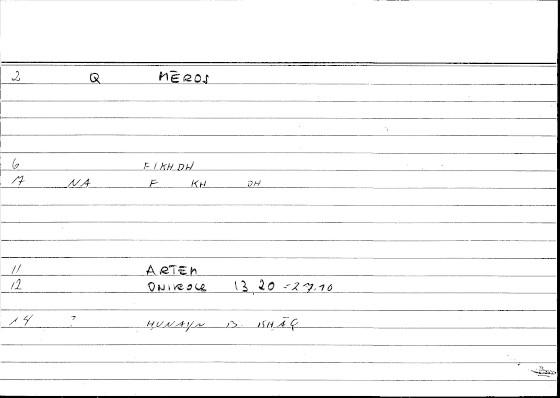 2 Q MĒROS
6 FIKHDH
17 NA F KH DH
11 ARTEM
12 ONIROCR 13,20 = 27.10
14 ? HUNAYN B. ISḤĀQ